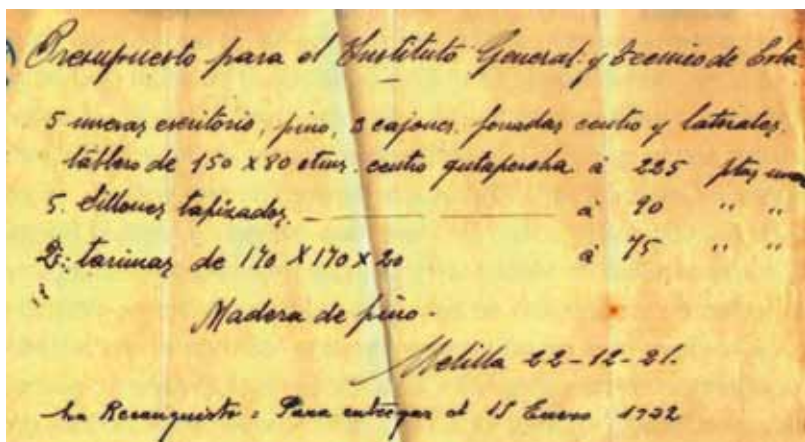 Presupuesto para el Instituto General y Tecnico de Esta
5 mesas escritorio, pino, 3 cajones. fonadas centro y laterales.
tablero de 150 X 80 ctms. centro gutapercha á 225 ptas una
5. Sillones tapizados. á 90 " "
2: tarimas de 170 X 170 X 20 á 75 " "
Madera de pino.
Melilla 22-12-21.
La Reconquista: Para entregar el 15 Enero 1922